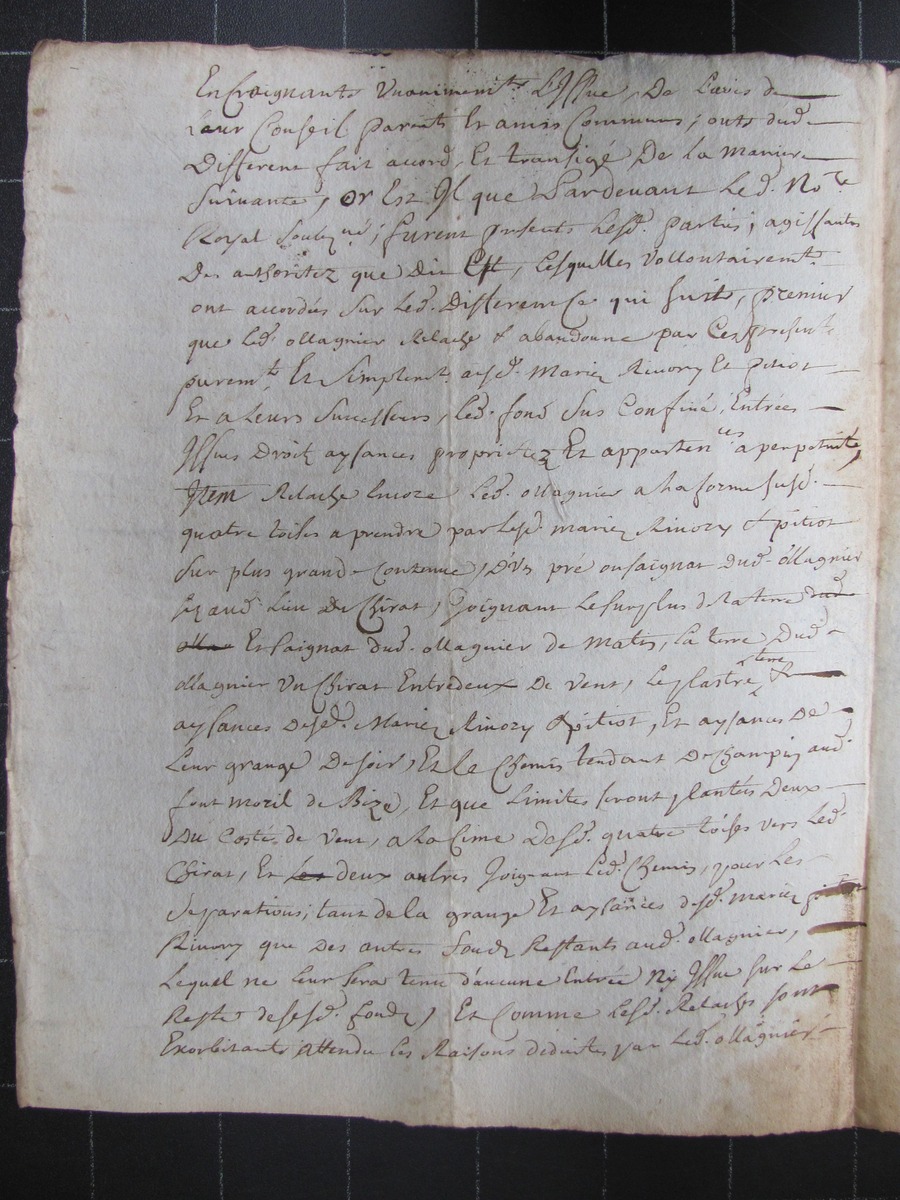 Encraignants Unanimemt. L'Issue, De L'avis de
Leur Conseil parents Et amis Communs, ont dud.
Different fait accord, Et transigé De la Maniere
Suivante, or Est Il que Pardevant Led. Nore
Royal Soubzné, furent presents Lesd. parties, agissantes
Des authoritez que dit Est, Lesquelles Vollontairemt.
ont accordés Sur Led. Different Ce qui suits, premier
que Led. ollagnier Relache & abandonne par Ces presents
puremt. Et Simplemt. ausd. Mariez Rivory Et pitiot
Et a Leurs Successeurs, Led. fond Sus Confiné, Entrées
Issues Droitz aysances proprietez Et appartences a perpetuité,
Item Relache Encore Led. ollagnier a la forme susd.
quatre toises a prendre par Lesd. mariez Rivory & pitiot
Sur plus grand Contenue, D'Un pré ou saignat Dud. ollagnier
aud. Lieu De Chirat, Joignant Le surplus d la terre dud
Et saignat dud. ollagnier de matin, La terre Dud.
ollagnier Un Chirat Entredeux De Vent, Le plastre, terre &
aysances Desd. Mariez Rivory & pitiot, Et aysances De
Leur grange De soir, Et Le Chemin tendant De Champis aud.
font moril de Bize, Et que Limites seront plantées Deux
Du Costé de Vent, a La Cime Desd. quatre toises vers Led.
Chirat, Et Les deux autres Joignant Led. Chemin, pour Les
Separations, tant de la grange Et aysances desd. mariez
Rivory que des autres fondz Restants aud. ollagnier,
Lequel ne Leur sera tenu d'aucune Entrée Ny Issue sur Le
Reste de sesd. fondz, Et Comme Lesd. Relachs sont
Exorbitants attendu les Raisons deduittes par Led. ollagnier